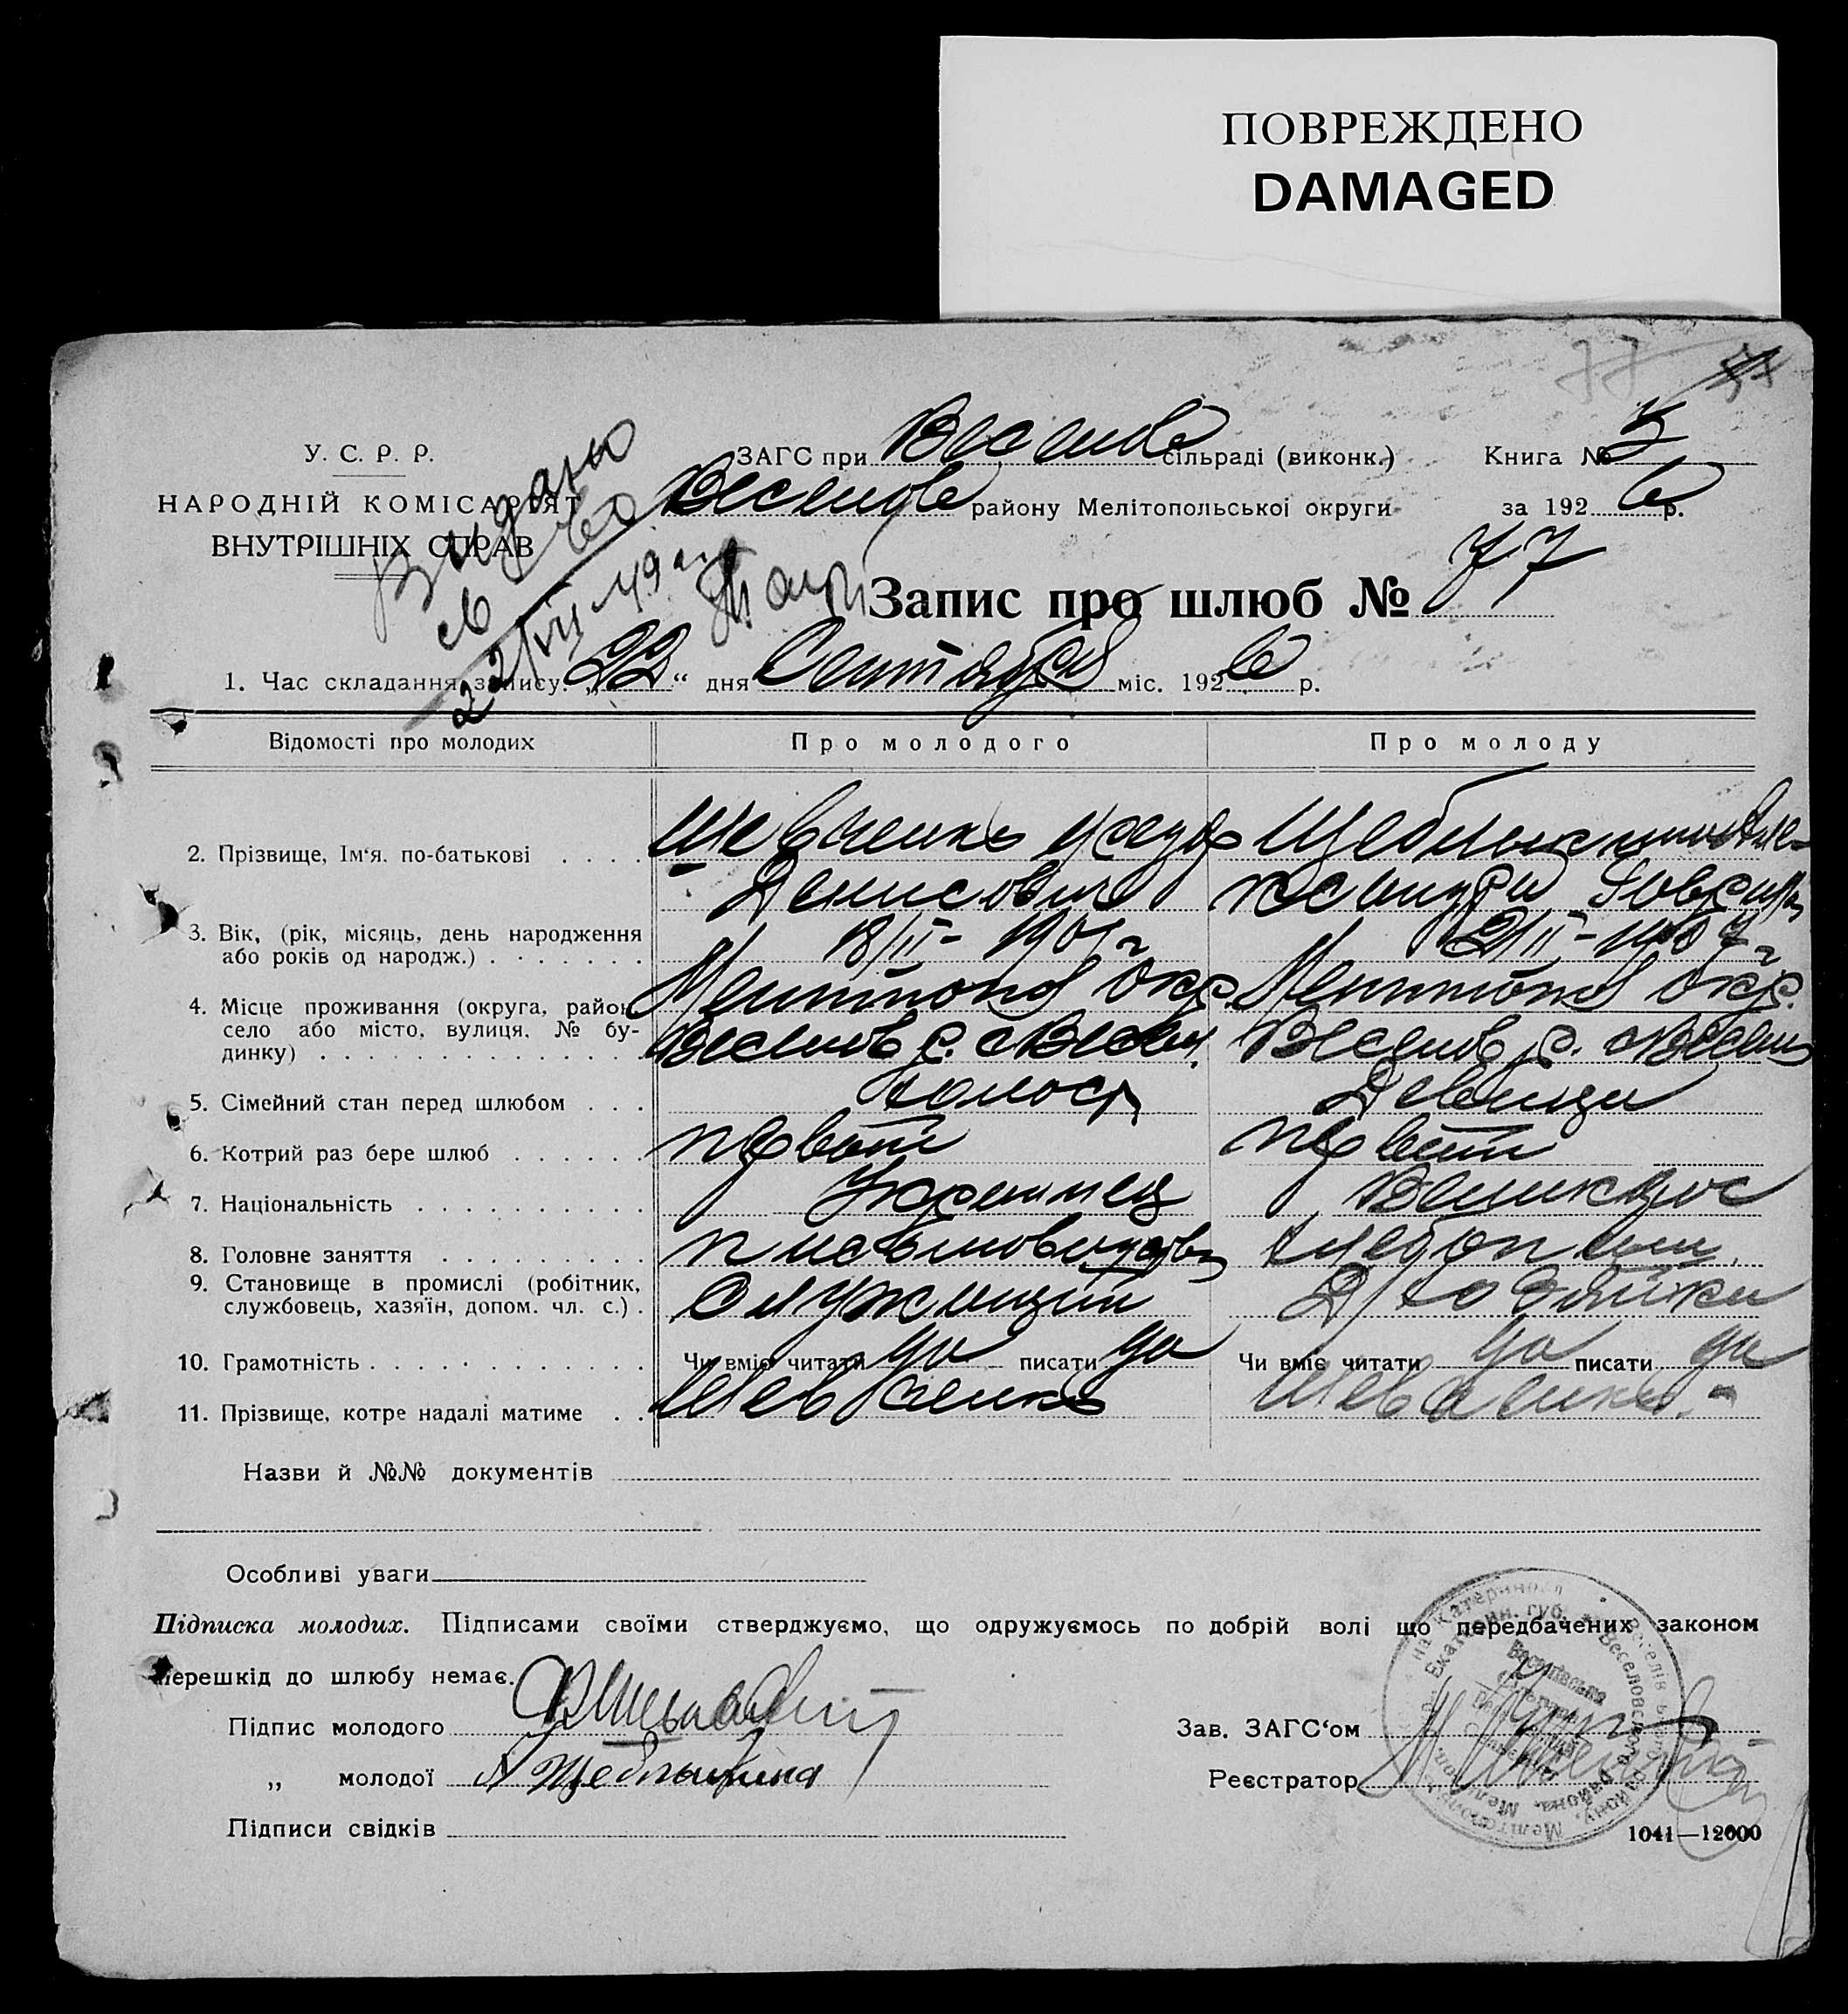 ПОВРЕЖДЕНО
DAMAGED
77
У. С. Р. Р.
НАРОДНІЙ КОМІСАРІЯТ
ВНУТРІШНІХ СПРАВ
Видано
св во
ЗАГС при Веселов сільраді (виконк.) Книга № 3
Веселов району Мелітопольської округи за 1926 р.
Запис про шлюб № 77
1. Час складання запису: „22“ дня Сентября міс. 1926 р.
Відомості про молодих Про молодого Про молоду
2. Прізвище, Ім‘я, по-батькові . . . . Шевченко Щеблыкина Але-
Денисович ксандра
3. Вік, (рік, місяць, день народження
або років од народж.) . . . . . . 18/II- 190 г 2/II-190 г
4. Місце проживання (округа, район, Мелитопол Окр. Мелитопол Окр.
село або місто, вулиця, № бу- Веселов р. с Весел. Веселов р. с Весел
динку) . . . . . . . . . . . . . .
5. Сімейний стан перед шлюбом . . . холост Девица
6. Котрий раз бере шлюб . . . . . . первый первый
7. Національність . . . . . . . . . . Украинец Великорос
8. Головне заняття . . . . . . . . . письмоводств хлебопаш.
9. Становище в промислі (робітник,
службовець, хазяїн, допом. чл. с.) . Служащий Д/хозяйки
10. Грамотність . . . . . . . . . . . . Чи вміє читати да писати да Чи вміє читати да писати да
11. Прізвище, котре надалі матиме . . Шевченко Шевченко.-
Назви й №№ документів
Особливі уваги
Підписка молодих. Підписами своїми стверджуємо, що одружуємось по добрій волі що передбачених законом
перешкід до шлюбу немає.
Підпис молодого
Зав. ЗАГС‘ом
„ молодої А Щеблыкина
Реєстратор
Підписи свідків
1041—12000